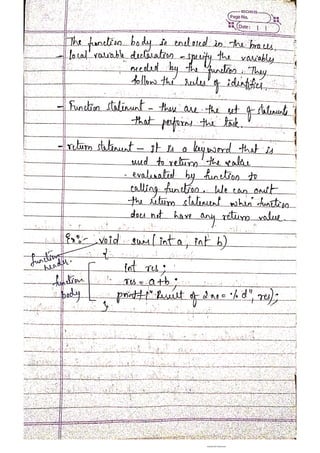 Page No.
Date : | |
The function body is enclosed in the braces.
- local variable declaration - specify the variables
needed by the function. They
follow the rules of identifier.
- Function statement - they are the set of statements
that perform the task.
- return statement - It is a keyword that is
used to return the value
evaluated by function to
calling function. We can omit
the return statement when function
does not have any return value.
Ex:- void sum(int a, int b)
function header. {
int res;
function body res = a+b;
printf("Result of 2 no = %d", res);
}